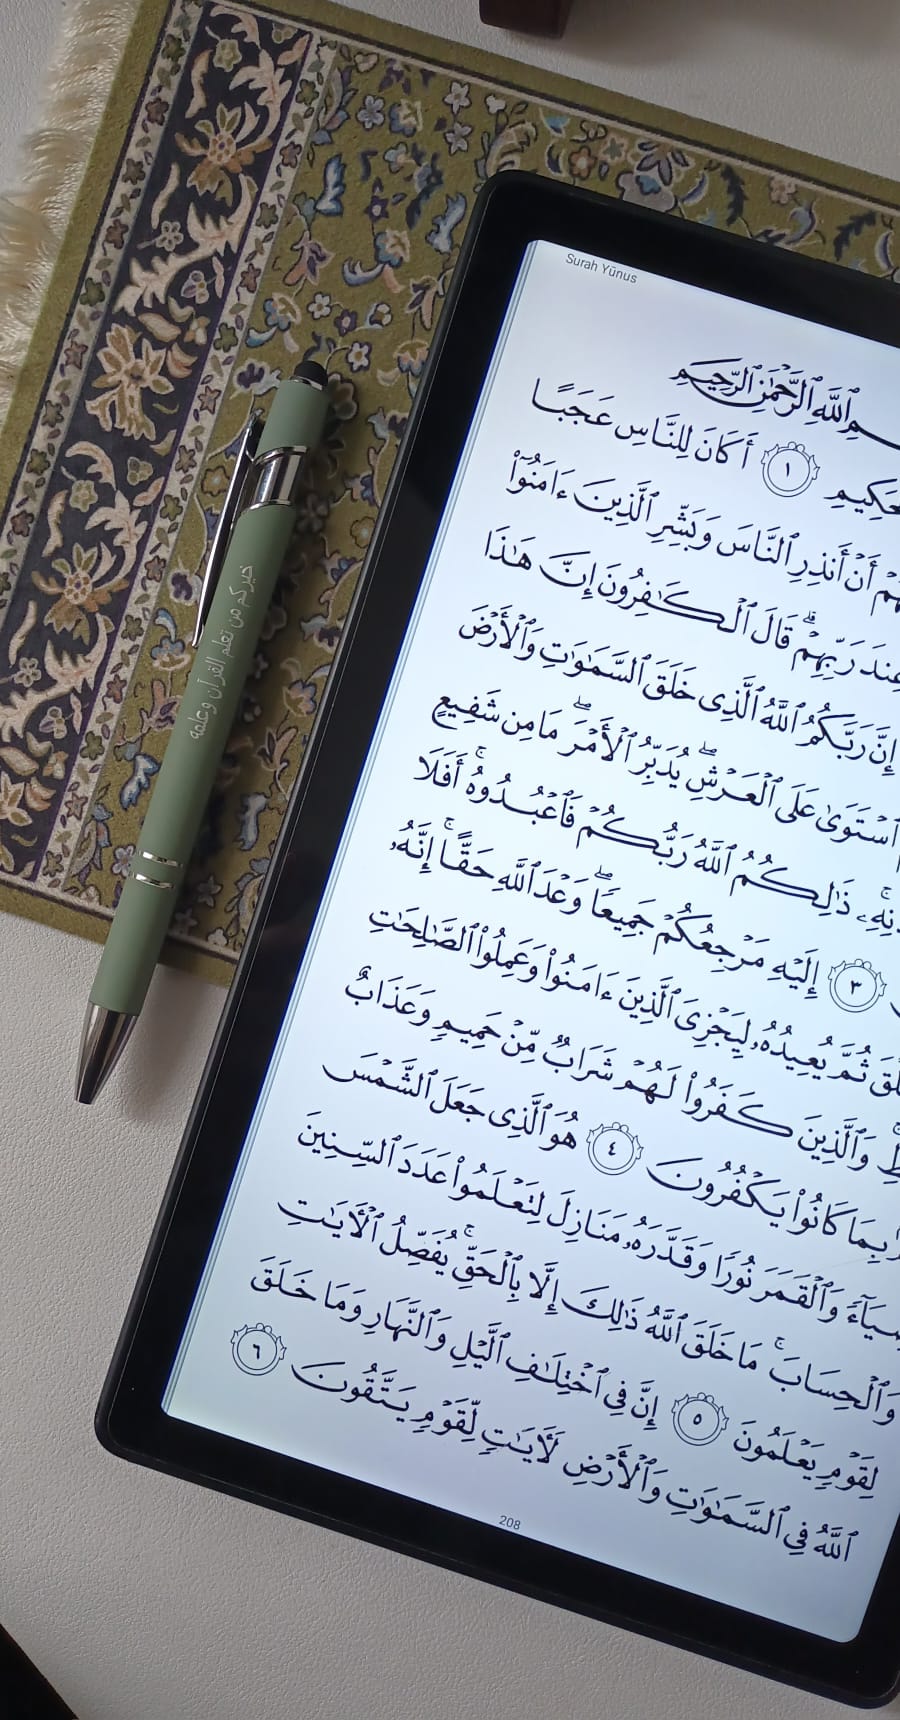 Surah Yūnus
ٱللَّهِ ٱلرَّحْمَٰنِ ٱلرَّحِيمِ
١ أَكَانَ لِلنَّاسِ عَجَبًا
أَنْ أَنذِرِ ٱلنَّاسَ وَبَشِّرِ ٱلَّذِينَ ءَامَنُوٓا۟
عِندَ رَبِّهِمْ ۗ قَالَ ٱلْكَٰفِرُونَ إِنَّ هَٰذَا
إِنَّ رَبَّكُمُ ٱللَّهُ ٱلَّذِى خَلَقَ ٱلسَّمَٰوَٰتِ وَٱلْأَرْضَ
ٱسْتَوَىٰ عَلَى ٱلْعَرْشِ ۖ يُدَبِّرُ ٱلْأَمْرَ ۖ مَا مِن شَفِيعٍ
ذَٰلِكُمُ ٱللَّهُ رَبُّكُمْ فَٱعْبُدُوهُ ۚ أَفَلَا
٣ إِلَيْهِ مَرْجِعُكُمْ جَمِيعًا ۖ وَعْدَ ٱللَّهِ حَقًّا ۚ إِنَّهُۥ
ثُمَّ يُعِيدُهُۥ لِيَجْزِىَ ٱلَّذِينَ ءَامَنُوا۟ وَعَمِلُوا۟ ٱلصَّٰلِحَٰتِ
وَٱلَّذِينَ كَفَرُوا۟ لَهُمْ شَرَابٌ مِّنْ حَمِيمٍ وَعَذَابٌ
بِمَا كَانُوا۟ يَكْفُرُونَ ٤ هُوَ ٱلَّذِى جَعَلَ ٱلشَّمْسَ
وَٱلْقَمَرَ نُورًا وَقَدَّرَهُۥ مَنَازِلَ لِتَعْلَمُوا۟ عَدَدَ ٱلسِّنِينَ
وَٱلْحِسَابَ ۚ مَا خَلَقَ ٱللَّهُ ذَٰلِكَ إِلَّا بِٱلْحَقِّ ۚ يُفَصِّلُ ٱلْءَايَٰتِ
لِقَوْمٍ يَعْلَمُونَ ٥ إِنَّ فِى ٱخْتِلَٰفِ ٱلَّيْلِ وَٱلنَّهَارِ وَمَا خَلَقَ
ٱللَّهُ فِى ٱلسَّمَٰوَٰتِ وَٱلْأَرْضِ لَءَايَٰتٍ لِّقَوْمٍ يَتَّقُونَ ٦
208
خيركم من تعلم القرآن وعلمه